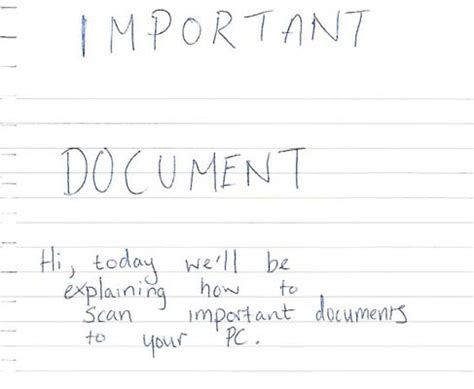 IMPORTANT
DOCUMENT
Hi, today we'll be
explaining how to
scan important documents
to your PC.